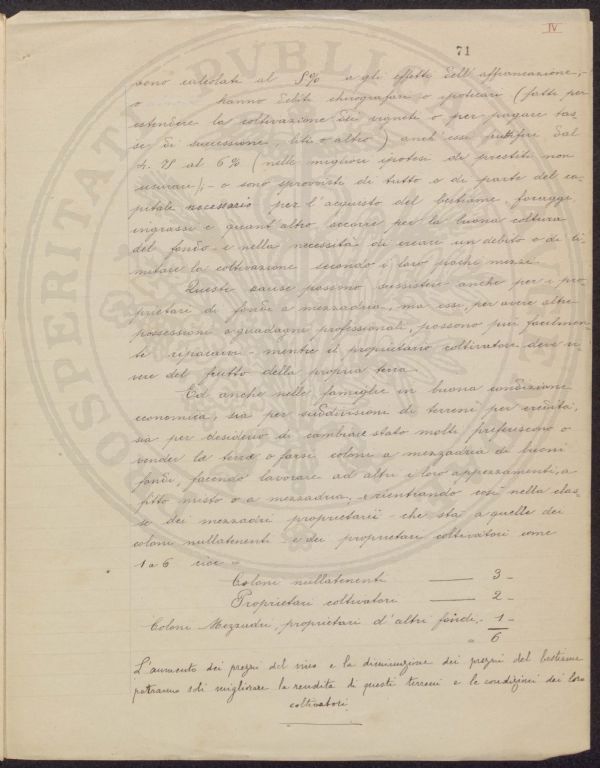 IV
71
sono calcolate al 5% agli effetti dell'affrancazione;-
o hanno debiti chirografari o ipotecari (fatti per
estendere la coltivazione dei vigneti o per pagare tas-
se di successione, liti o altro) anch'essi fruttiferi dal
4.75 al 6% (nelle migliori ipotesi di prestiti non
usurarii);- o sono sprovvisti di tutto o di parte del ca-
pitale necessario per l'acquisto del bestiame, foraggi
ingrassi e quant'altro occorre per la buona coltura
del fondo e nella necessità di creare un debito o di li-
mitare la coltivazione secondo i loro pochi mezzi.
Queste cause possono sussistere anche per i pro-
prietari di fondi a mezzadria, ma essi, per avere altre
possessioni o guadagni professionali, possono più facilmen-
te ripararvi - mentre il proprietario coltivatore deve vi-
vere del frutto della propria terra.
Ed anche nelle famiglie in buona condizione
economica, sia per suddivisioni di terreni per eredità,
sia per desiderio di cambiare stato molti preferiscono o
vender la terra o farsi coloni a mezzadria di buoni
fondi, facendo lavorare ad altri i loro appezzamenti, a
fitto misto o a mezzadria, rientrando così nella clas-
se dei mezzadri proprietarii - che sta a quelle dei
coloni nullatenenti e dei proprietari coltivatori come
1 a 6 cioè
Coloni nullatenenti —— 3 -
Proprietari coltivatori —— 2 -
Coloni Mezzadri, proprietari d'altri fondi.- 1 -
6
L'aumento dei prezzi del vino e la diminuzione dei prezzi del bestiame
potranno soli migliorare la rendita di questi terreni e le condizioni dei loro
coltivatori.